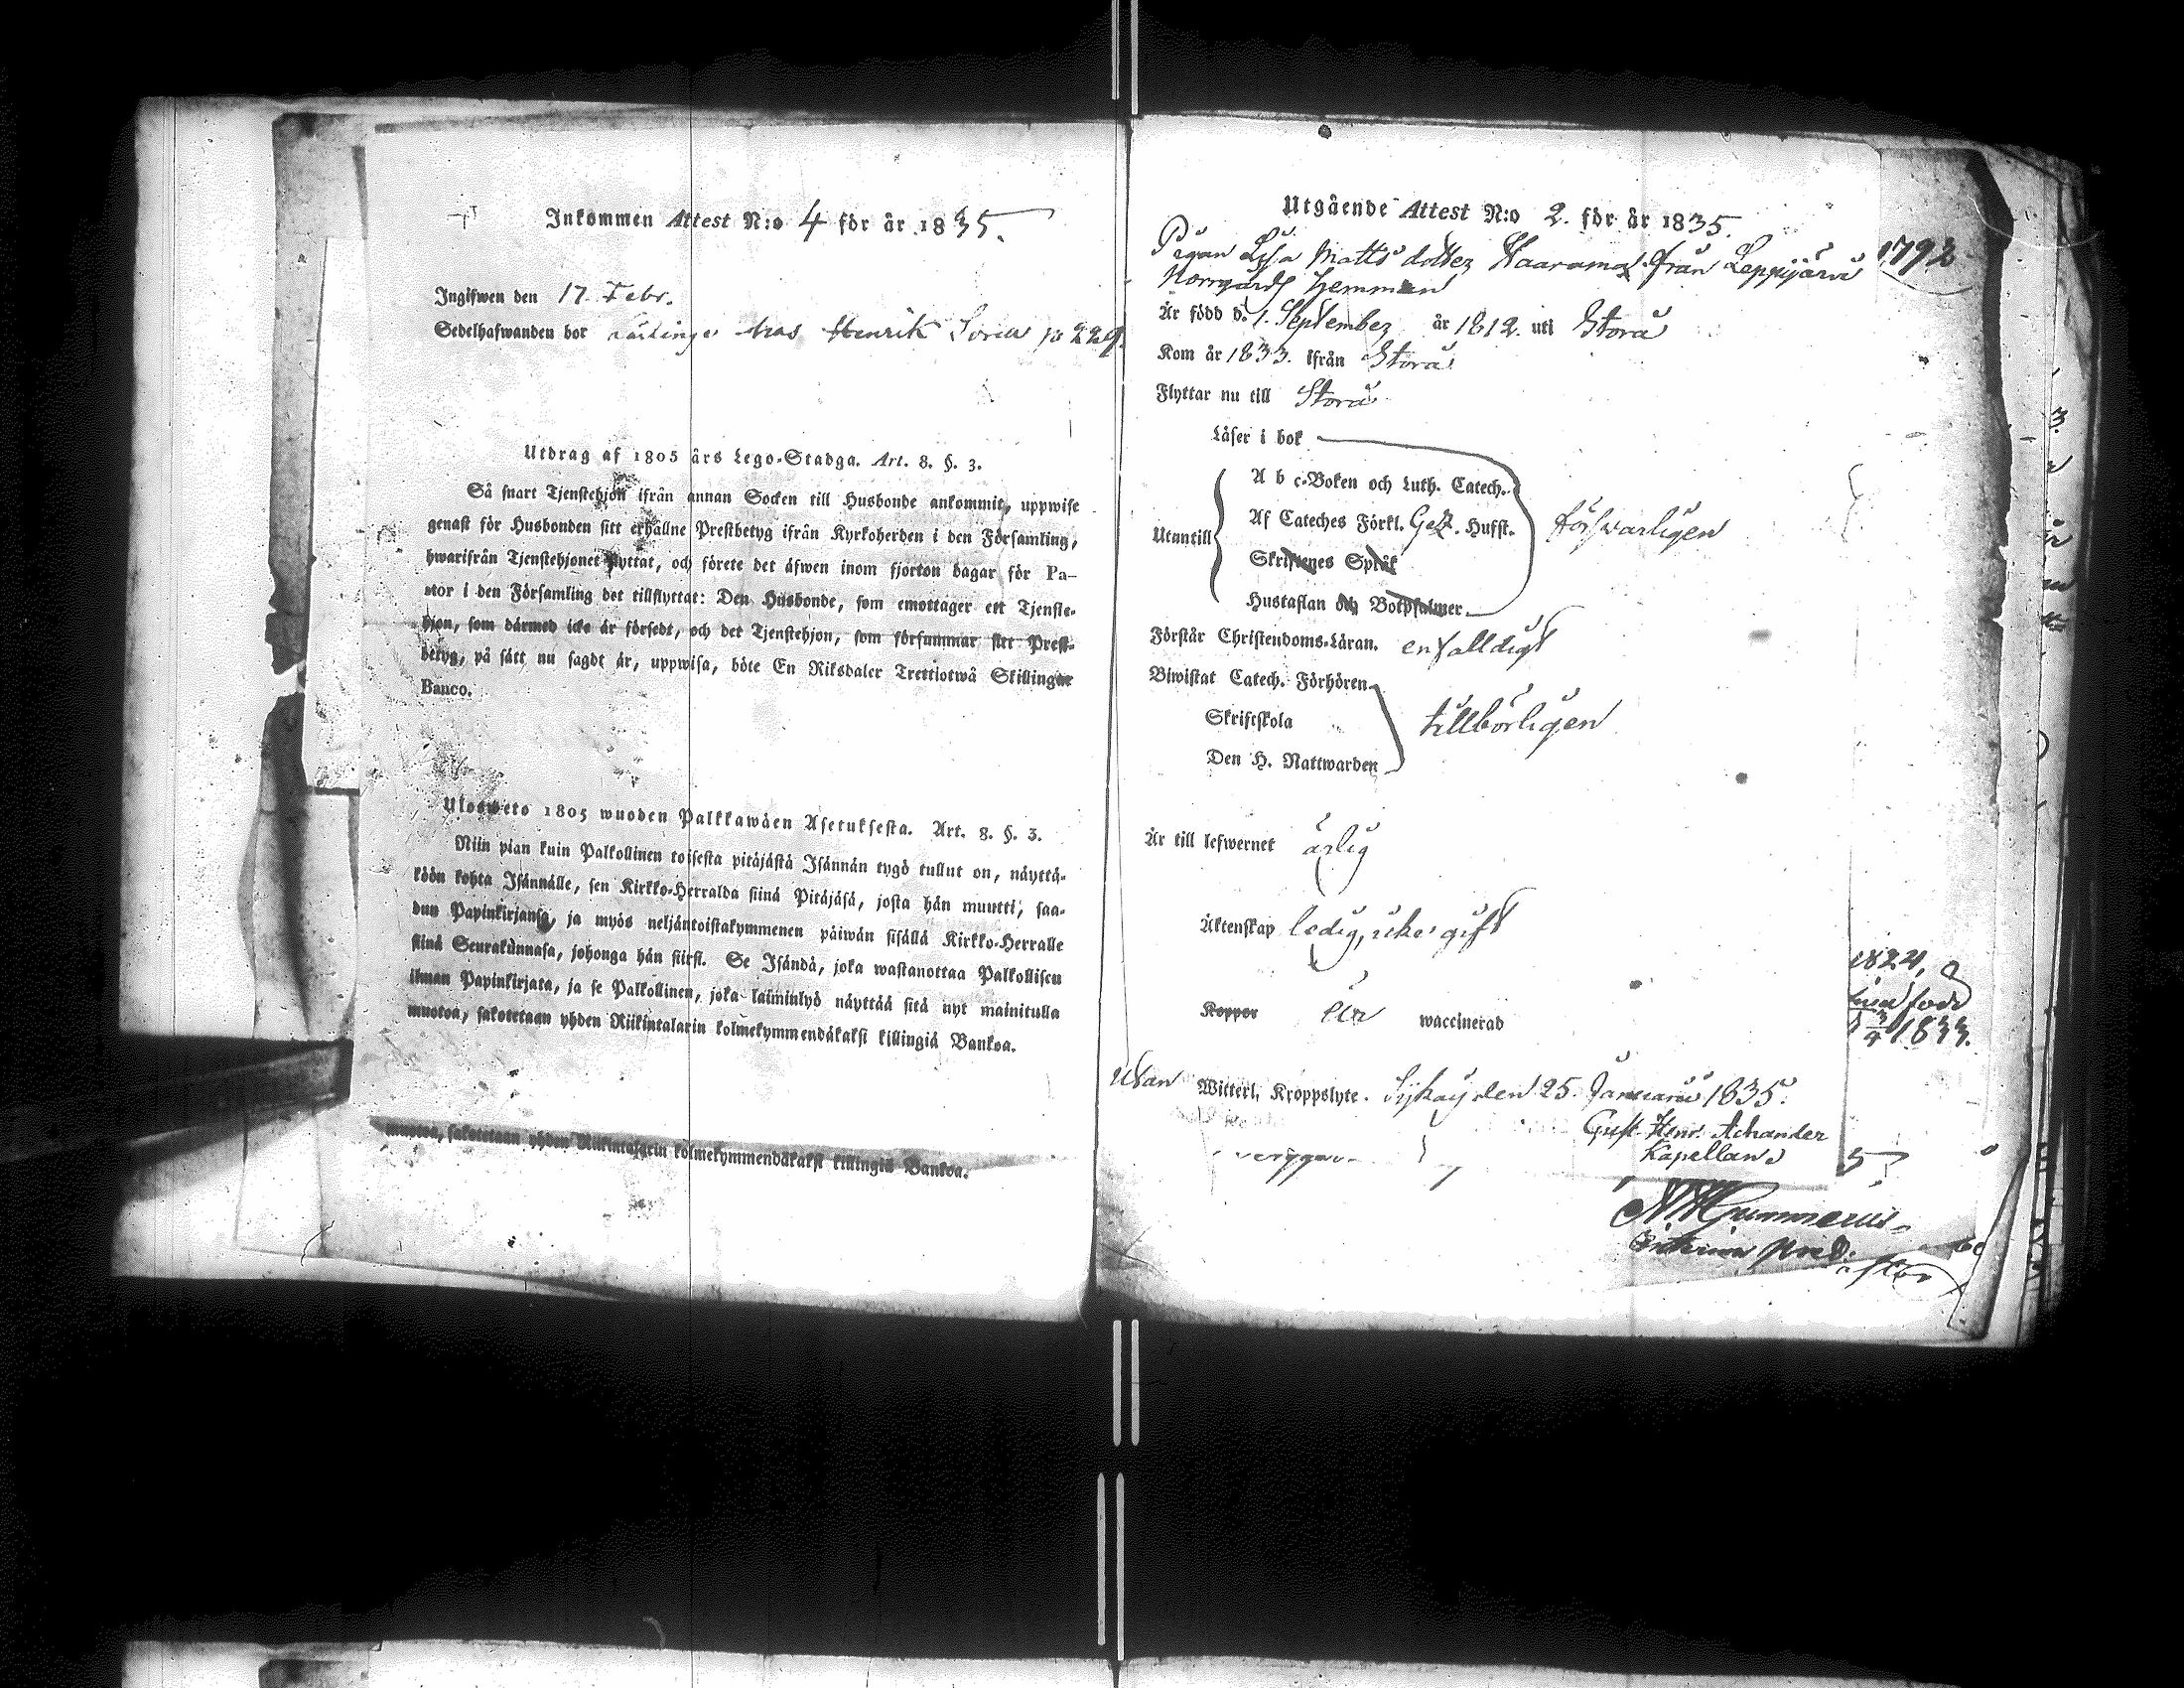 Inkommen Attest N:o 4 för år 1835.
Ingifwen den 17 Febr.
Sedelhafwanden bor hos Henrik 229.
Utdrag af 1805 års Lego-Stadga. Art. 8. §. 3.
Så snart Tjenstehjon ifrån annan Socken till Husbonde ankommit, uppwise
genast för Husbonden sitt erhållne Prestbetyg ifrån Kyrkoherden i den Församling,
hwarifrån Tjenstehjonet flyttat, och förete det äfwen inom fjorton dagar för Pa-
stor i den Församling det tillflyttat: Den Husbonde, som emottager ett Tjenste-
hjon, som därmed icke är försedt, och det Tjenstehjon, som försummar sitt Prest-
betyg, på sätt nu sagdt är, uppwisa, böte En Riksdaler Trettiotwå Skillingar
Banco.
Ulosweto 1805 wuoden Palkkawäen Asetuksesta. Art. 8. §. 3.
Niin pian kuin Palkollinen toisesta pitäjästä Isännän tygö tullut on, näyttä-
köön kohta Isännälle, sen Kirkko-Herralda siinä Pitäjäsä, josta hän muutti, saa-
dun Papinkirjansa, ja myös neljäntoistakymmenen päiwän sisällä Kirkko-Herralle
siinä Seurakunnasa, johonga hän siirsi. Se Isändä, joka wastanottaa Palkollisen
ilman Papinkirjata, ja se Palkollinen, joka laiminlyö näyttää sitä nyt mainitulla
muotoa, sakotetaan yhden Riikintalarin kolmekymmendäkaksi killingiä Bankoa.
muotoa, sakotetaan yhden Riikintalarin kolmekymmendäkaksi killingiä Bankoa.
Utgående Attest N:o 2. för år 1835.
Pigan Lisa Matts dotter Haarama från Leppijärvi
Norrgårds hemman
Är född d. 1. September år 1812. uti Storå
Kom år 1833. ifrån Storå
Flyttar nu till Storå
Läser i bok
A b c-Boken och Luth. Catech.
Utantill Af Cateches Förkl. Hufst. försvarligen
Skriftenes Språk
Hustaflan och Botpsalmer
Förstår Christendoms-Läran. enfalldigt
Biwistat Catech. Förhören
Skriftskola tillbörligen
Den H. Nattwarden
Är till lefwernet ärlig
Äktenskap ledig, icke gift
Koppor Är waccinerad
Utan Witterl. Kroppslyte. den 25. Januarii 1835.
Gust. Henr. Achander
Kapellan
1792
1824,
född
1833.